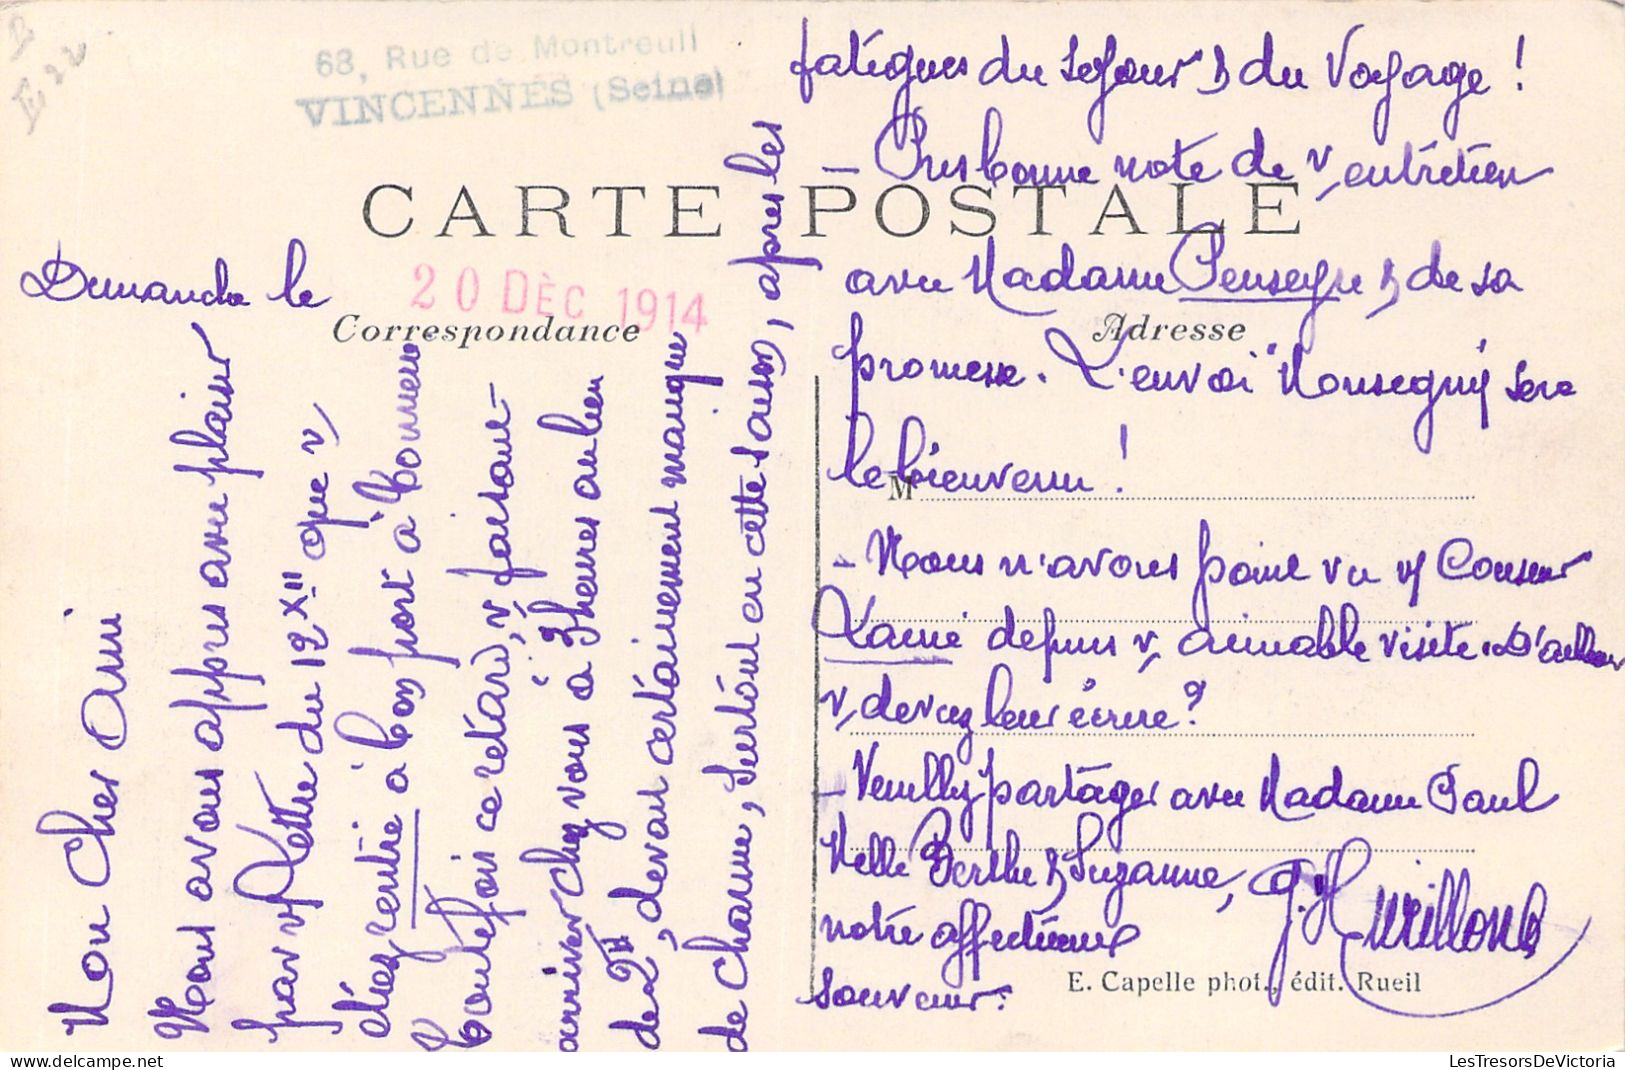 68, Rue de Montreuil
VINCENNES (Seine)
CARTE POSTALE
Dimanche le
20 DÈC 1914
Correspondance
Adresse
M
Mon Cher Ami
Nous avons appris avec plaisir
par v/ Lettre du 12 Xbre que v/
étiez rentré à bon port à
Toutefois ce retard, v/ faisant
arriver chez vous à 3 heures au lieu
de 2h, devait certainement manquer
de charme, surtout en cette saison, après les
fatigues du séjour & du Voyage !
- Pris bonne note de v/ entretien
avec Madame Penseyre & de sa
promesse. L'envoi sera
le bienvenu !
- Nous n'avons point vu vos
depuis v/ aimable visite. D'ailleurs
v/ devez leur écrire ?
- Veuillez partager avec Madame Paul
Melle Berthe & Suzanne,
notre affectueux
souvenir.
E. Capelle phot., édit. Rueil
LesTresorsDeVictoria
delcampe.net